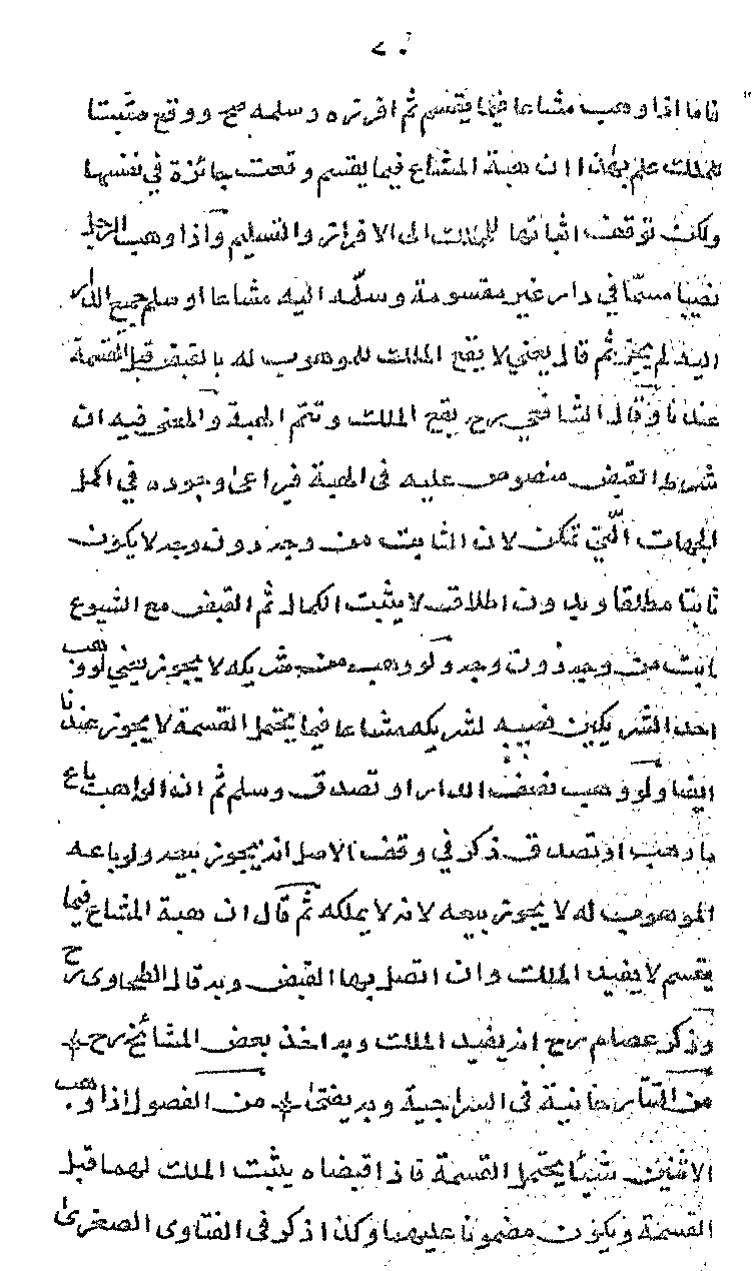 ٧٠
فاما اذا وهب مشاعا فيما يقسم ثم افرزه وسلمه صح ووقع مثبتا
للملك علم بهذا ان هبة المشاع فيما يقسم وقعت جائزة في نفسها
ولكن توقف اثباتها للملك الى الافراز والتسليم واذا وهب الرجل
نصيبا مسمّا في دار غير مقسومة وسلّمه اليه مشاعا او سلم جميع الدار
اليه لم يجز ثم قال يعني لا يقع الملك للموهوب له بالقبض قبل القسمة
عندنا وقال الشافعي رح يقع الملك وتتم الهبة والمعنى فيه ان
شرط القبض منصوص عليه فى الهبة فيراعى وجوده في اكمل
الجهات الّتي تمكن لان الثابت من وجه دون وجه لا يكون
ثابتا مطلقا وبدون اطلاق لا يثبت الكمال ثم القبض مع الشيوع
ثابت من وجه دون وجه ولو وهب من شريكه لا يجوز يعني لو وهب
احد الشريكين نصيبه لشريكه مشاعا فيما يحتمل القسمة لا يجوز عندنا
ايضا ولو وهب نصف الدار او تصدق وسلم ثم ان الواهب باع
ما وهب او تصدق ذكر في وقف الاصل انه يجوز بيعه ولو باعه
الموهوب له لا يجوز بيعه لانه لا يملكه ثم قال ان هبة المشاع فيما
يقسم لا يفيد الملك وان اتصل بها القبض وبه قال الطحاوى رح
وذكر عصام رح انه يفيد الملك وبه اخذ بعض المشائخ رح
من التتارخانية فى السراجية وبه يفتى من الفصول اذا وهب
الاثنين شيئا يحتمل القسمة فاذا قبضاه يثبت الملك لهما قبل
القسمة ويكون مضمونا عليهما وكذا ذكر فى الفتاوى الصغرى